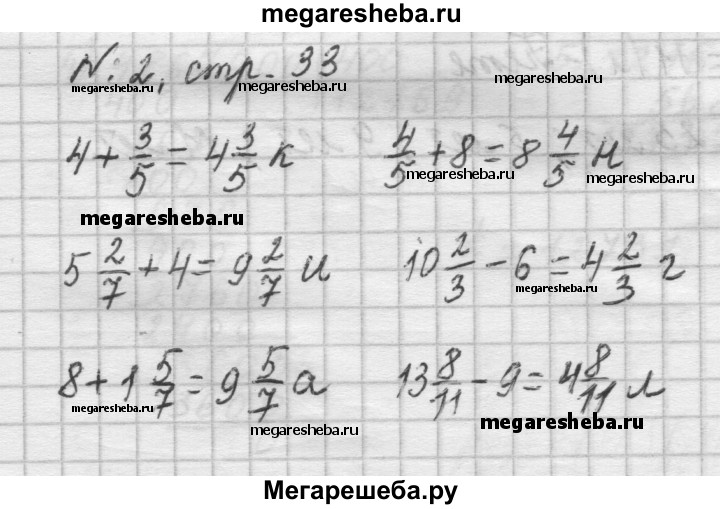 megaresheba.ru
№ 2, стр. 33
megaresheba.ru megaresheba.ru
4 + 3/5 = 4 3/5 к 4/5 + 8 = 8 4/5 н
megaresheba.ru megaresheba.ru
megaresheba.ru
5 2/7 + 4 = 9 2/7 и 10 2/3 - 6 = 4 2/3 г
megaresheba.ru
8 + 1 5/7 = 9 5/7 а 13 8/11 - 9 = 4 8/11 л
megaresheba.ru megaresheba.ru
megaresheba.ru
Мегарешеба.ру